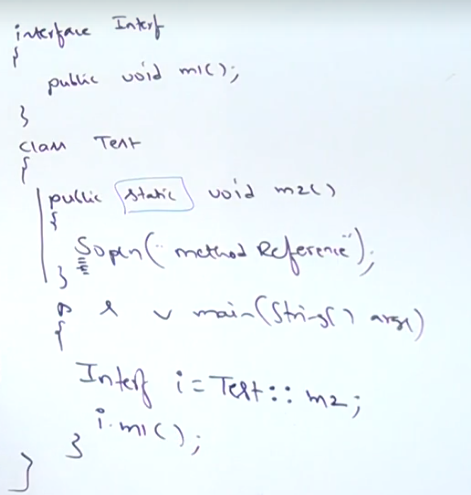 interface Interf
{
public void m1();
}
class Test
{
public static void m2()
{
Sopln("method Reference");
}
p s v main(String[] args)
{
Interf i = Test :: m2;
i.m1();
}
}